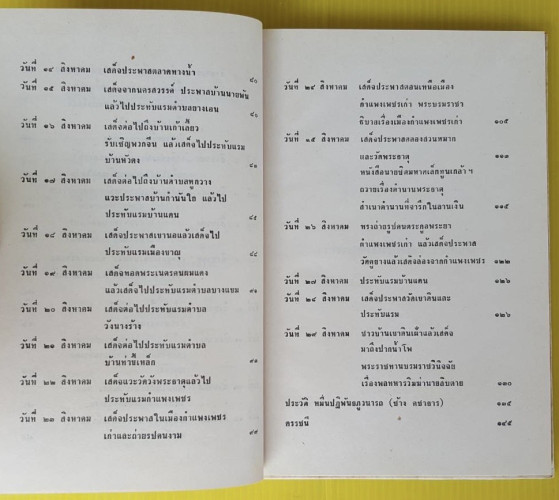 วันที่ ๑๔ สิงหาคม เสด็จประพาสตลาดทางน้ำ
๔๐
วันที่ ๑๕ สิงหาคม เสด็จจากนครสวรรค์ ประพาสบ้านนายพัน
แล้วไปประทับแรมตำบลยางเอน
วันที่ ๑๖ สิงหาคม เสด็จต่อไปถึงบ้านเก้าเลี้ยว
รับเชิญพวกจีน แล้วเสด็จไปประทับแรม
บ้านหัวดง
วันที่ ๑๗ สิงหาคม เสด็จต่อไปถึงบ้านตำบลหูกวาง
แวะประพาสบ้านกำนันไฮ แล้วไป
ประทับแรมบ้านแดน
๘๕
วันที่ ๑๘ สิงหาคม เสด็จประพาสเขานอแล้วเสด็จไป
ประทับแรมเมืองขาณุ
วันที่ ๑๙ สิงหาคม เสด็จทอดพระเนตรคนผมแดง
แล้วเสด็จไปประทับแรมตำบลบางแขม
๙๑
วันที่ ๒๐ สิงหาคม เสด็จต่อไปประทับแรมตำบล
วังนางร้าง
วันที่ ๒๑ สิงหาคม เสด็จต่อไปประทับแรมตำบล
บ้านท่าขี้เหล็ก
วันที่ ๒๒ สิงหาคม เสด็จแวะวัดวังพระธาตุแล้วไป
ประทับแรมกำแพงเพชร
วันที่ ๒๓ สิงหาคม เสด็จประพาสในเมืองกำแพงเพชร
เก่าและถ่ายรูปคนงาม
๙๙
วันที่ ๒๔ สิงหาคม เสด็จประพาสตอนเหนือเมือง
กำแพงเพชรเก่า พระบรมราชา
ธิบายเรื่องเมืองกำแพงเพชรเก่า
๑๐๕
วันที่ ๒๕ สิงหาคม เสด็จประพาสคลองสวนหมาก
และวัดพระธาตุ
๑๑๓
หนังสือนายชิดมหาดเล็กทูนเกล้า ฯ
ถวายเรื่องตำนานพระธาตุ
สำเนาตำนานที่จารึกในลานเงิน
๑๑๕
วันที่ ๒๖ สิงหาคม ทรงถ่ายรูปคนตระกูลพระยา
กำแพงเพชรเก่า แล้วเสด็จประพาส
วัดคูยางแล้วเสด็จล่องจากกำแพงเพชร
๑๒๒
วันที่ ๒๗ สิงหาคม ประทับแรมบ้านแดน
๑๒๖
วันที่ ๒๘ สิงหาคม เสด็จประพาสวัดเขาดินและ
ประทับแรม
๑๒๖
วันที่ ๒๙ สิงหาคม ชาวบ้านเขาดินเฝ้าแล้วเสด็จ
มาถึงปากน้ำโพ
พระราชหานบรมราชวินิจฉัย
เรื่องพลทหารวิมม่านายสิบตาย
๑๓๐
ประวัติ หมื่นปฏิพันธภูวนารถ (ช้าง คชาธาร)
๑๓๕
ดรรชนี
๑๔๕